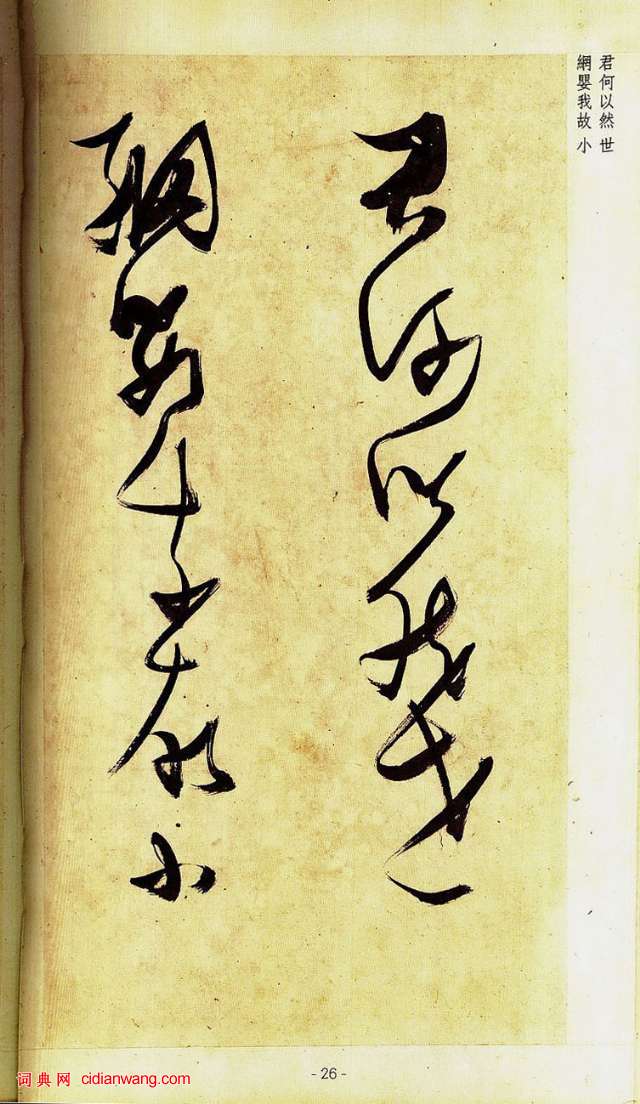 君何以然世
網嬰我故小
君何以然世
網嬰我故小
- 26 -
词典网 cidianwang.com